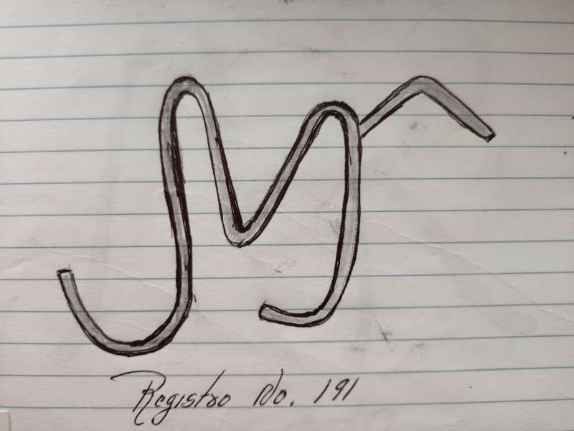 Registro No. 191